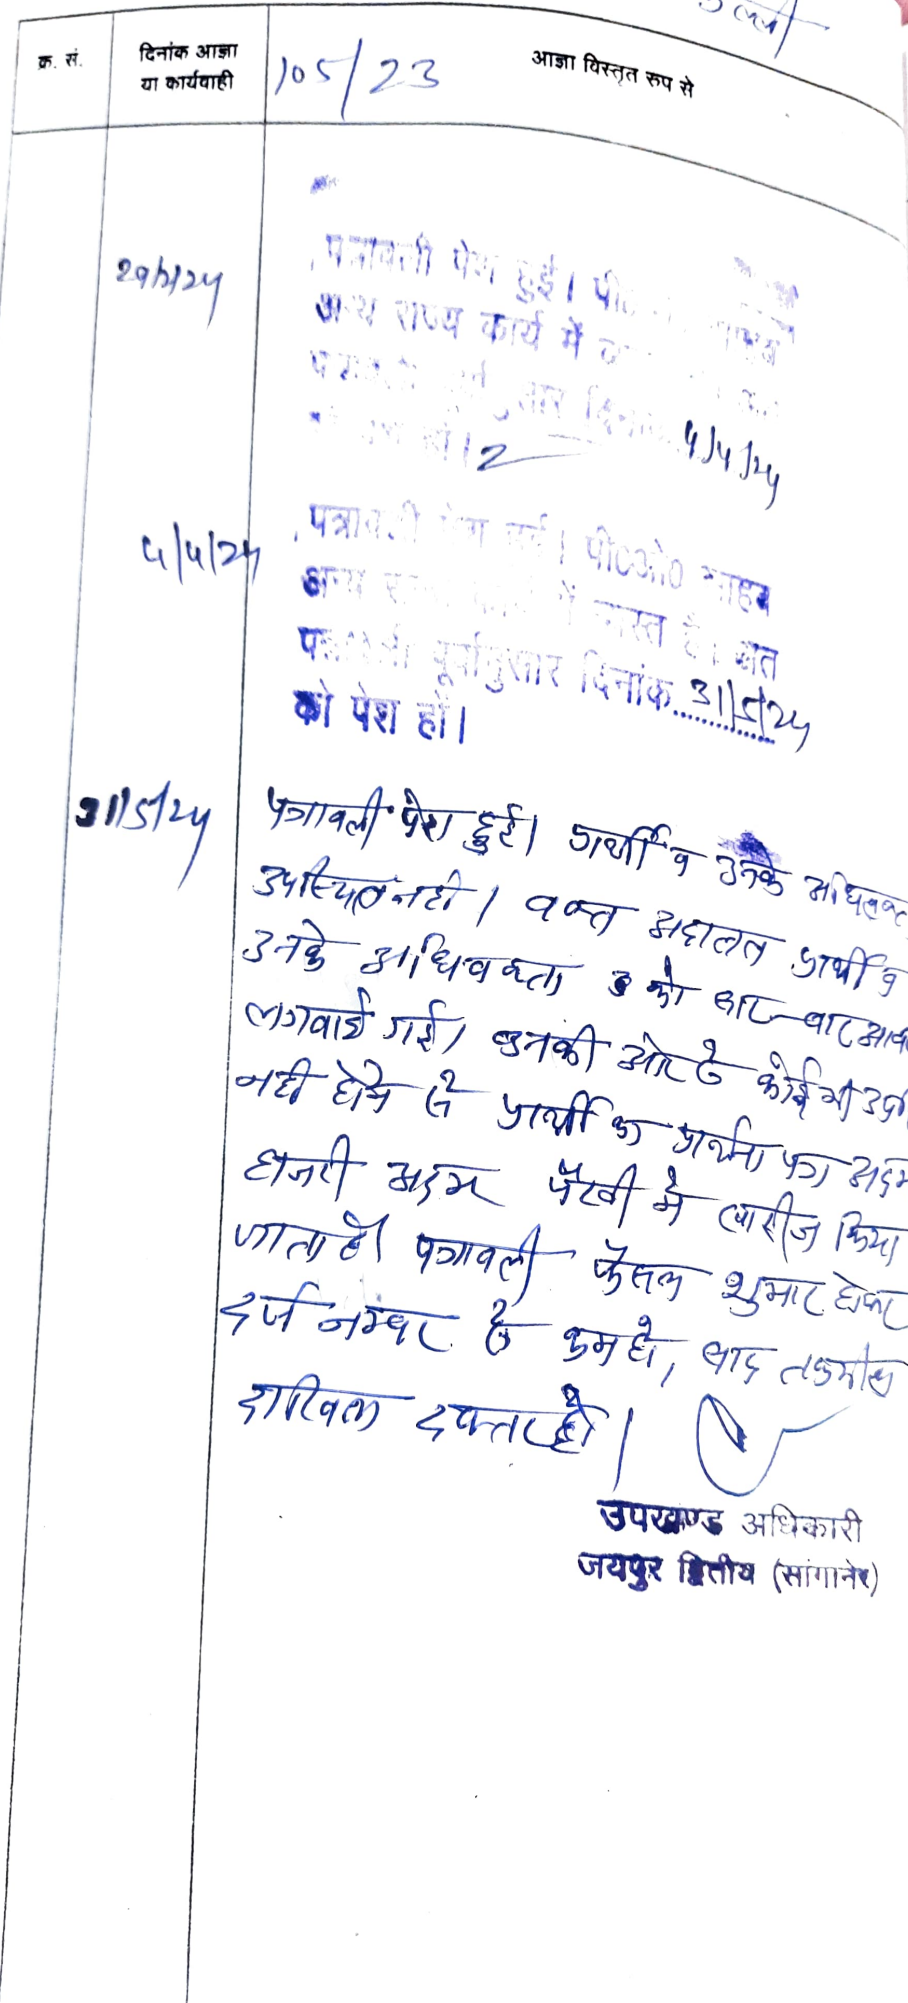 क्र. सं.
दिनांक आज्ञा
या कार्यवाही
105/23
आज्ञा विस्तृत रूप से
पत्रावली पेश हुई।
अन्य राज्य कार्य में
दिनांक 4/4/24
4/4/24
पत्रावली पेश हुई। पी0ओ0 साहब
अन्य राज्य कार्य में व्यस्त है। अत
पत्रावली पूर्वानुसार दिनांक 31/5/24
को पेश हों।
31/5/24
पत्रावली पेश हुई। प्रार्थी व उनके
उपस्थित नही। वक्त अदालत प्रार्थी व
उनके अधिवक्ता को बार-बार
लगवाई गई। उनकी ओर से कोई भी
नही होने से प्रार्थी का प्रार्थना पत्र अदम
हाजरी अदम पैरवी मे खारीज किया
जाता है। पत्रावली फैसल शुमार होकर
दर्ज नम्बर से कम हो, बाद तकमील
दाखिल दफ्तर हो।
उपखण्ड अधिकारी
जयपुर द्वितीय (सांगानेर)